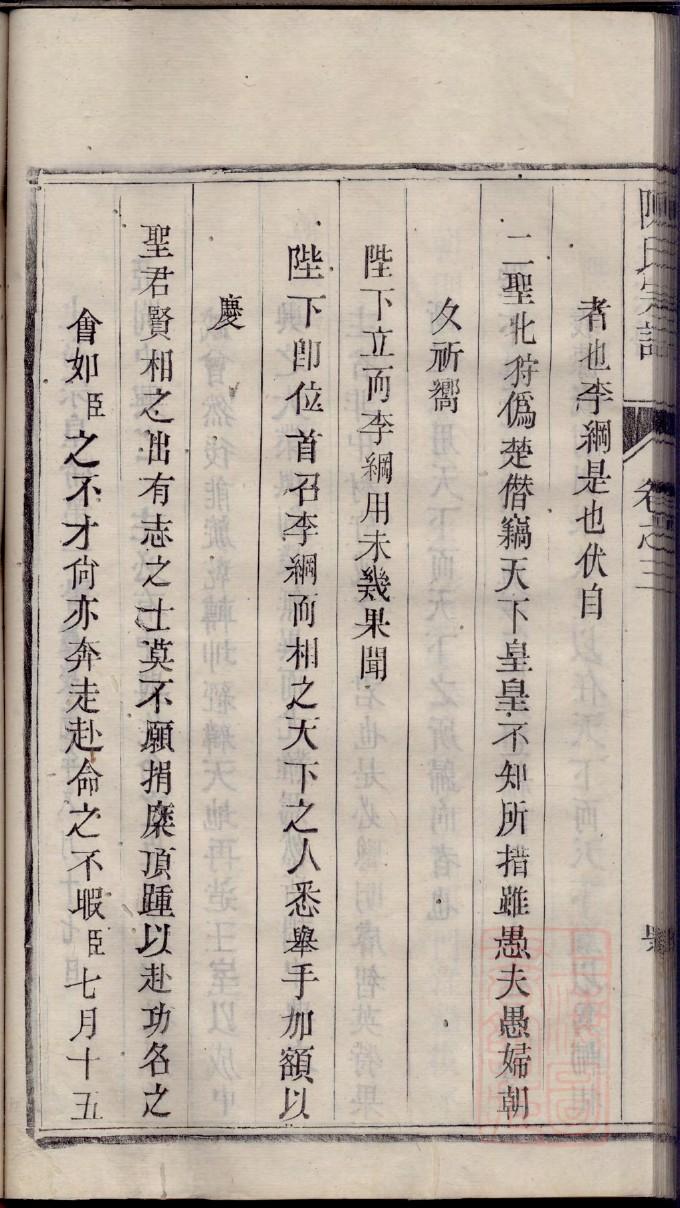 陳氏宗譜 卷之三
者也李綱是也伏自
二聖北狩僞楚僭竊天下皇皇不知所措雖愚夫愚婦朝
夕祈嚮
陛下立而李綱用未幾果聞
陛下卽位首召李綱而相之天下之人悉舉手加額以
慶
聖君賢相之出有志之士莫不願捐糜頂踵以赴功名之
會如臣之不才尙亦奔走赴命之不暇臣七月十五